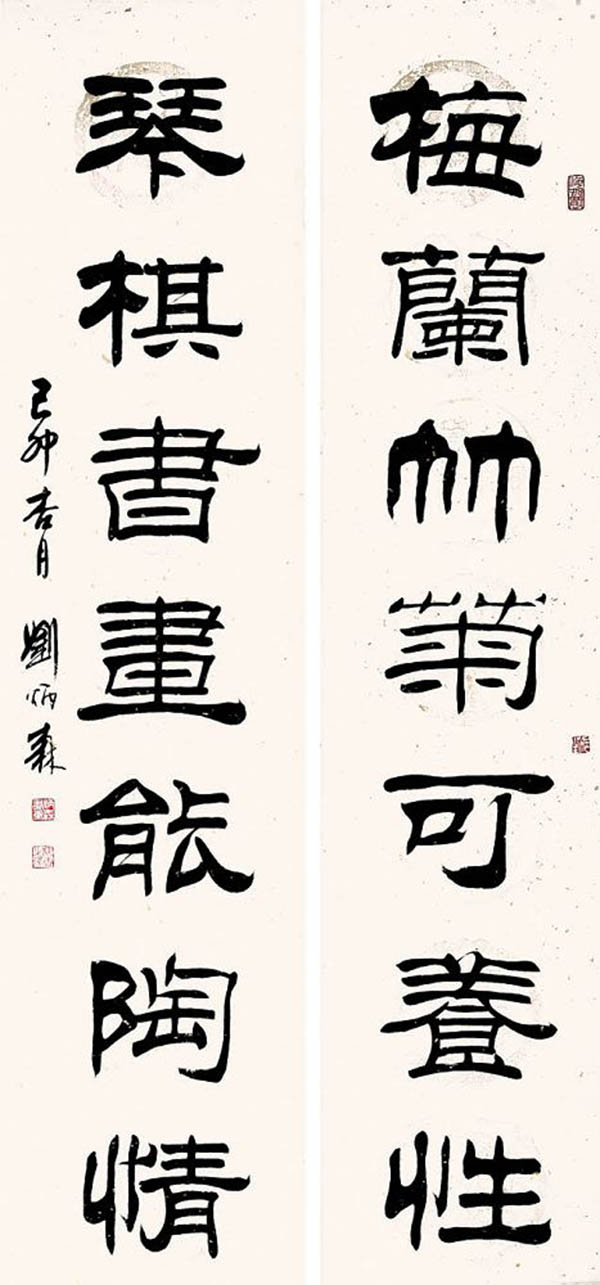 梅蘭竹菊可養性
琴棋書畫能陶情
己卯杏月 劉炳森